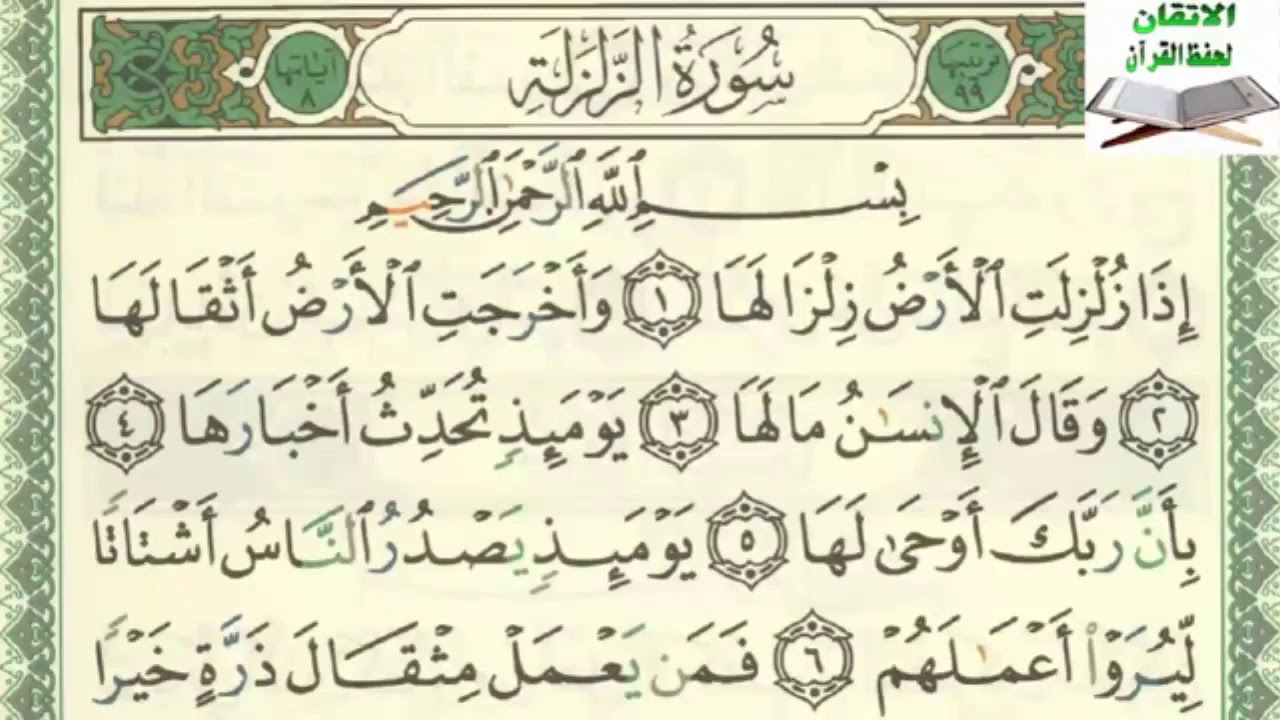 الاتقان
لحفظ القرآن
ترتيبها ٩٩
سُورَةُ الزَّلْزَلَةِ
آياتها ٨
بِسْمِ ٱللَّهِ ٱلرَّحْمَٰنِ ٱلرَّحِيمِ
إِذَا زُلْزِلَتِ ٱلْأَرْضُ زِلْزَالَهَا ١ وَأَخْرَجَتِ ٱلْأَرْضُ أَثْقَالَهَا
٢ وَقَالَ ٱلْإِنسَٰنُ مَا لَهَا ٣ يَوْمَئِذٍ تُحَدِّثُ أَخْبَارَهَا ٤
بِأَنَّ رَبَّكَ أَوْحَىٰ لَهَا ٥ يَوْمَئِذٍ يَصْدُرُ ٱلنَّاسُ أَشْتَاتًا
لِّيُرَوْا۟ أَعْمَٰلَهُمْ ٦ فَمَن يَعْمَلْ مِثْقَالَ ذَرَّةٍ خَيْرًا